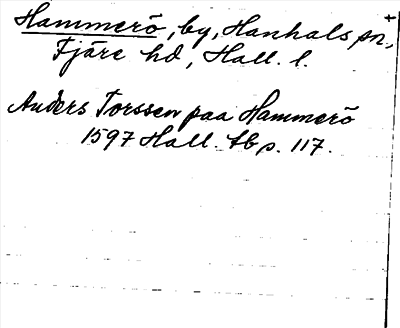 Hammerö, by, Hanhals sn.,
Fjäre hd, Hall. l.
Anders Torssen paa Hammerö
1597 Hall. tb p. 117.